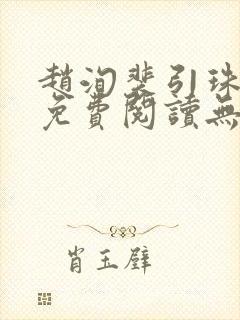 趙洵裴引珠
免費閱讀無
肖玉壁